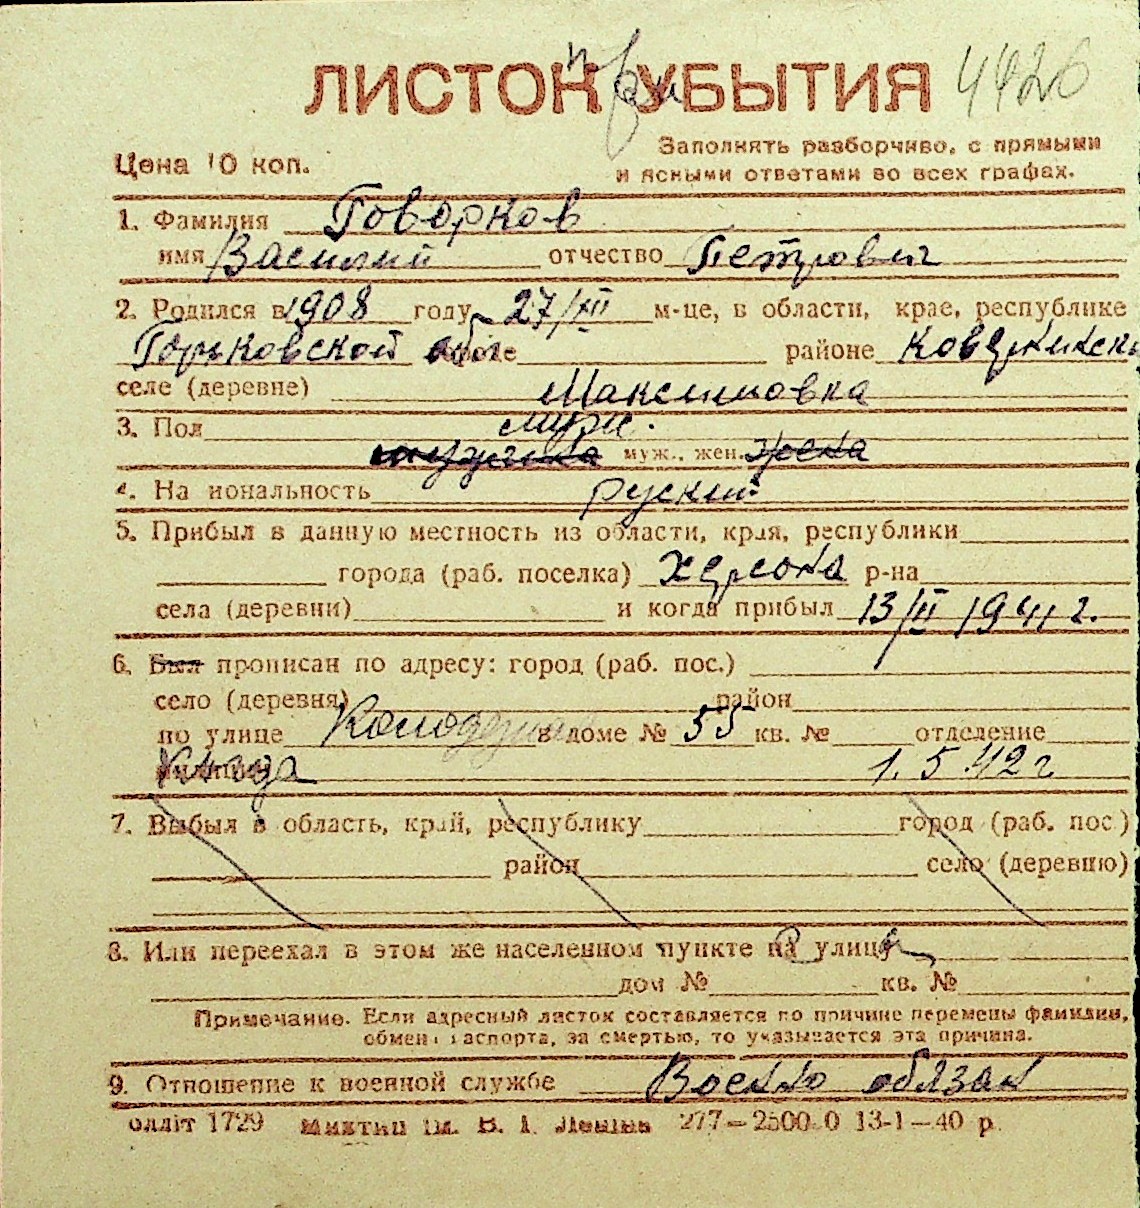 ЛИСТОК УБЫТИЯ 4426
Цена 10 коп. Заполнять разборчиво, с прямыми
и ясными ответами во всех графах.
1. Фамилия Говорков
имя Василий отчество Петрович
2. Родился в 1908 году 27/XII м-це, в области, крае, республике
Горьковской обл. районе
селе (деревне) Максимовка
3. Пол муж.
муж., жен.
4. На иональность руский
5. Прибыл в данную местность из области, края, республики
города (раб. поселка) Херсона р-на
села (деревни) и когда прибыл 13/II 1941 г.
6. Был прописан по адресу: город (раб. пос.)
село (деревня) район
по улице Колодезная в доме № 55 кв. № отделение
1.5.42 г
7. Выбыл в область, край, республику город (раб. пос.)
район село (деревню)
8. Или переехал в этом же населенном пункте на улицу
дом № кв. №
Примечание. Если адресный листок составляется по причине перемены фамилии,
обмена паспорта, за смертью, то указывается эта причина.
9. Отношение к военной службе Военно обязан
олліт 1729 277—2500.0 13-1—40 р.